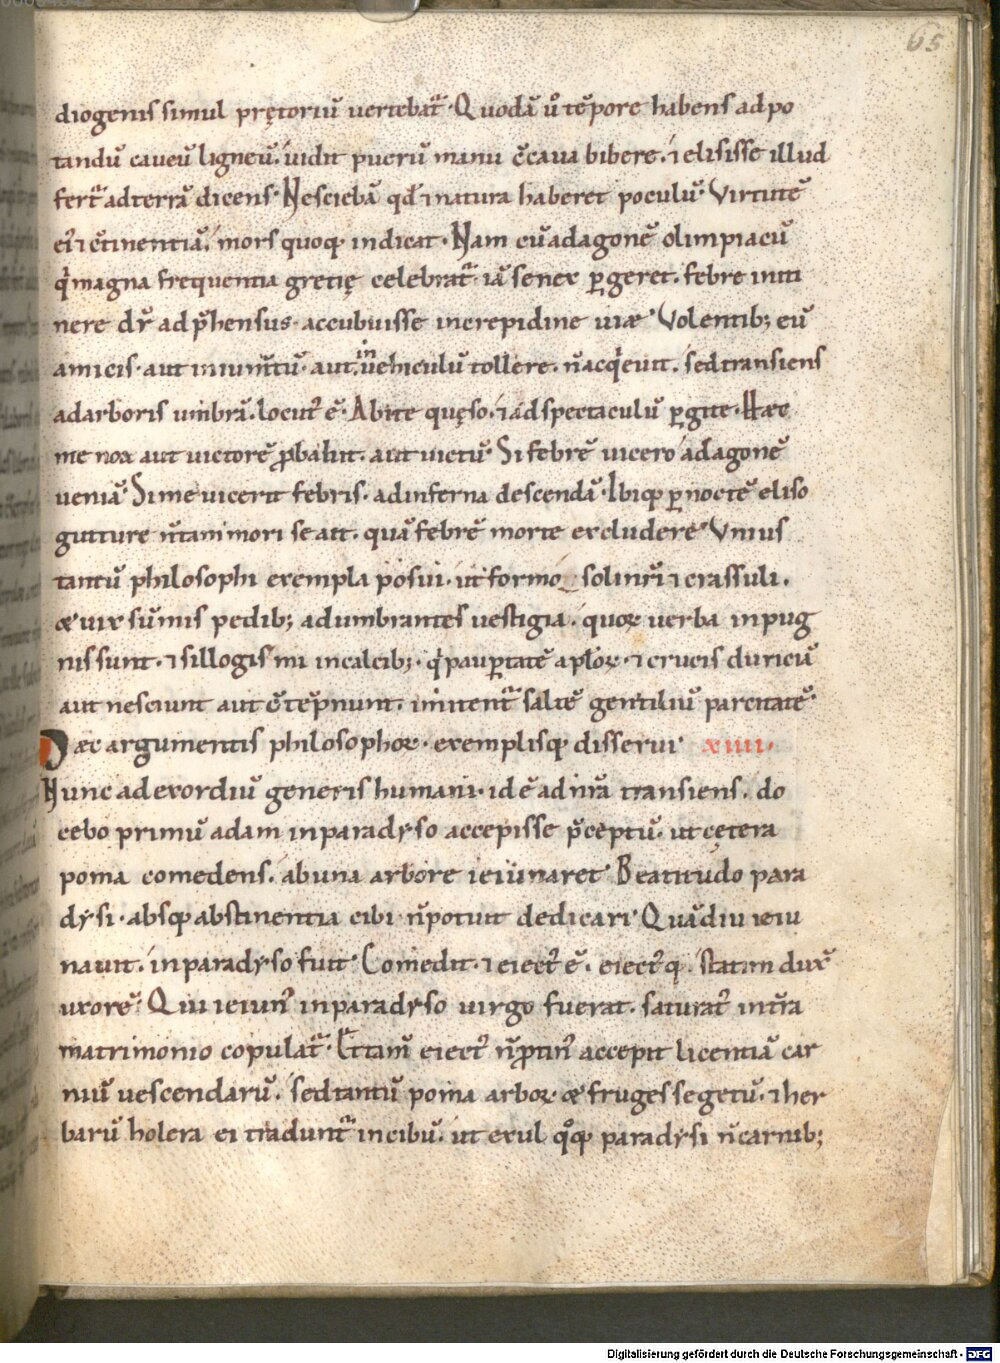 65
diogenis simul prętoriū vertebat᷑· Quodā ů tēpore habens ad po
tandū caveū ligneū. vidit puerū manu c̄cava bibere. ⁊ elisisse illud
fert᷑ ad terrā dicens· Nesciebā qđ ⁊ natura haberet poculū· Virtutē
ei᷒ ⁊ c̄tinentiā. mors quoq; indicat· Nam cū ad agonē olimpiacū
q̇ magna frequentia gretię celebrat᷑· iā senex ꝑgeret. febre in iti
nere dr̄ adp̄hensus· accubuisse in crepidine viæ· Volentib; eū
amicis· aut in iumtū· aut in vehiculū tollere. n̄ acq̇evit. sed transiens
ad arboris umbrā. locut᷒ ē· Abite quęso. ⁊ ad spectaculū ꝑgite· Hæc
me nox aut victorē ꝓbabit. aut victū· Si febrē vicero ad agonē
veniā· Si me vicerit febris. ad inferna descendā· Ibiq; ꝑ noctē eliso
gutture n̄ tam mori se ait. quā febrē morte excludere· Vnius
tantū philosophi exempla posui. ut formo soli nr̄i ⁊ crassuli.
& vix sūmis pedib; adumbrantes vestigia. quoꝝ verba in pug
nis sunt. ⁊ sillogismi in calcib;· q̇ paupertatē aplōꝝ· ⁊ crucis duriciā
aut nesciunt aut c̄tēpnunt. imitent᷑ saltē gentiliū parcitatē·
Hæc argumentis philosophoꝝ· exemplisq; disserui· xiiii·
Nunc ad exordiū generis humani· id ē ad nr̄a transiens. do
cebo primū adam in paradyso accepisse p̄ceptū. ut cętera
poma comedens. ab una arbore ieiunaret· Beatitudo para
dysi· absq; abstinentia cibi n̄ potuit dedicari· Quādiu ieiu
navit. in paradyso fuit· Comedit. ⁊ eiect᷒ ē. eiect᷒ q̨. statim dux̄
uxorē· Qui ieiun᷒ in paradyso virgo fuerat. saturat᷒ in tr̄a
matrimonio copulat᷑· Et tam̄ eiect᷒ n̄ ꝓtin᷒ accepit licentiā car
niū vescendarū. sed tantū poma arboꝝ & fruges segetū. ⁊ her
barū holera ei tradunt᷑ in cibū. ut exul q̊q; paradysi n̄ carnib;
Digitalisierung gefördert durch die Deutsche Forschungsgemeinschaft - DFG